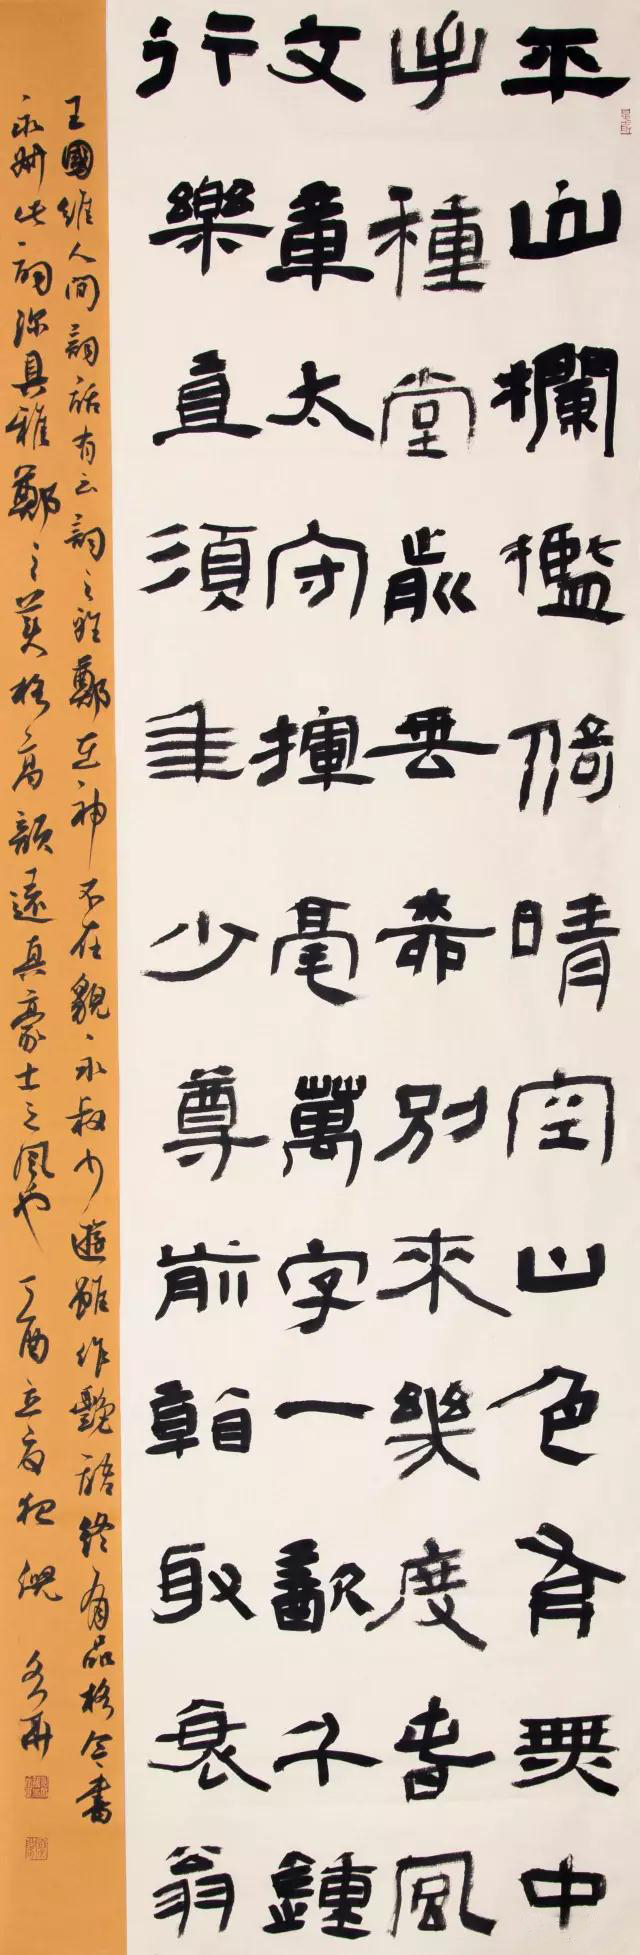 平山欄檻倚晴空山色有無中
手種堂前垂柳別來幾度春風
文章太守揮毫萬字一飲千鍾
行樂直須年少尊前看取衰翁
王國維人間詞話有云詞之雅鄭在神不在貌永叔少遊雖作艷語終有品格今書
永叔此詞深具雅鄭之美格高韻遠真豪士之風也丁酉立夏